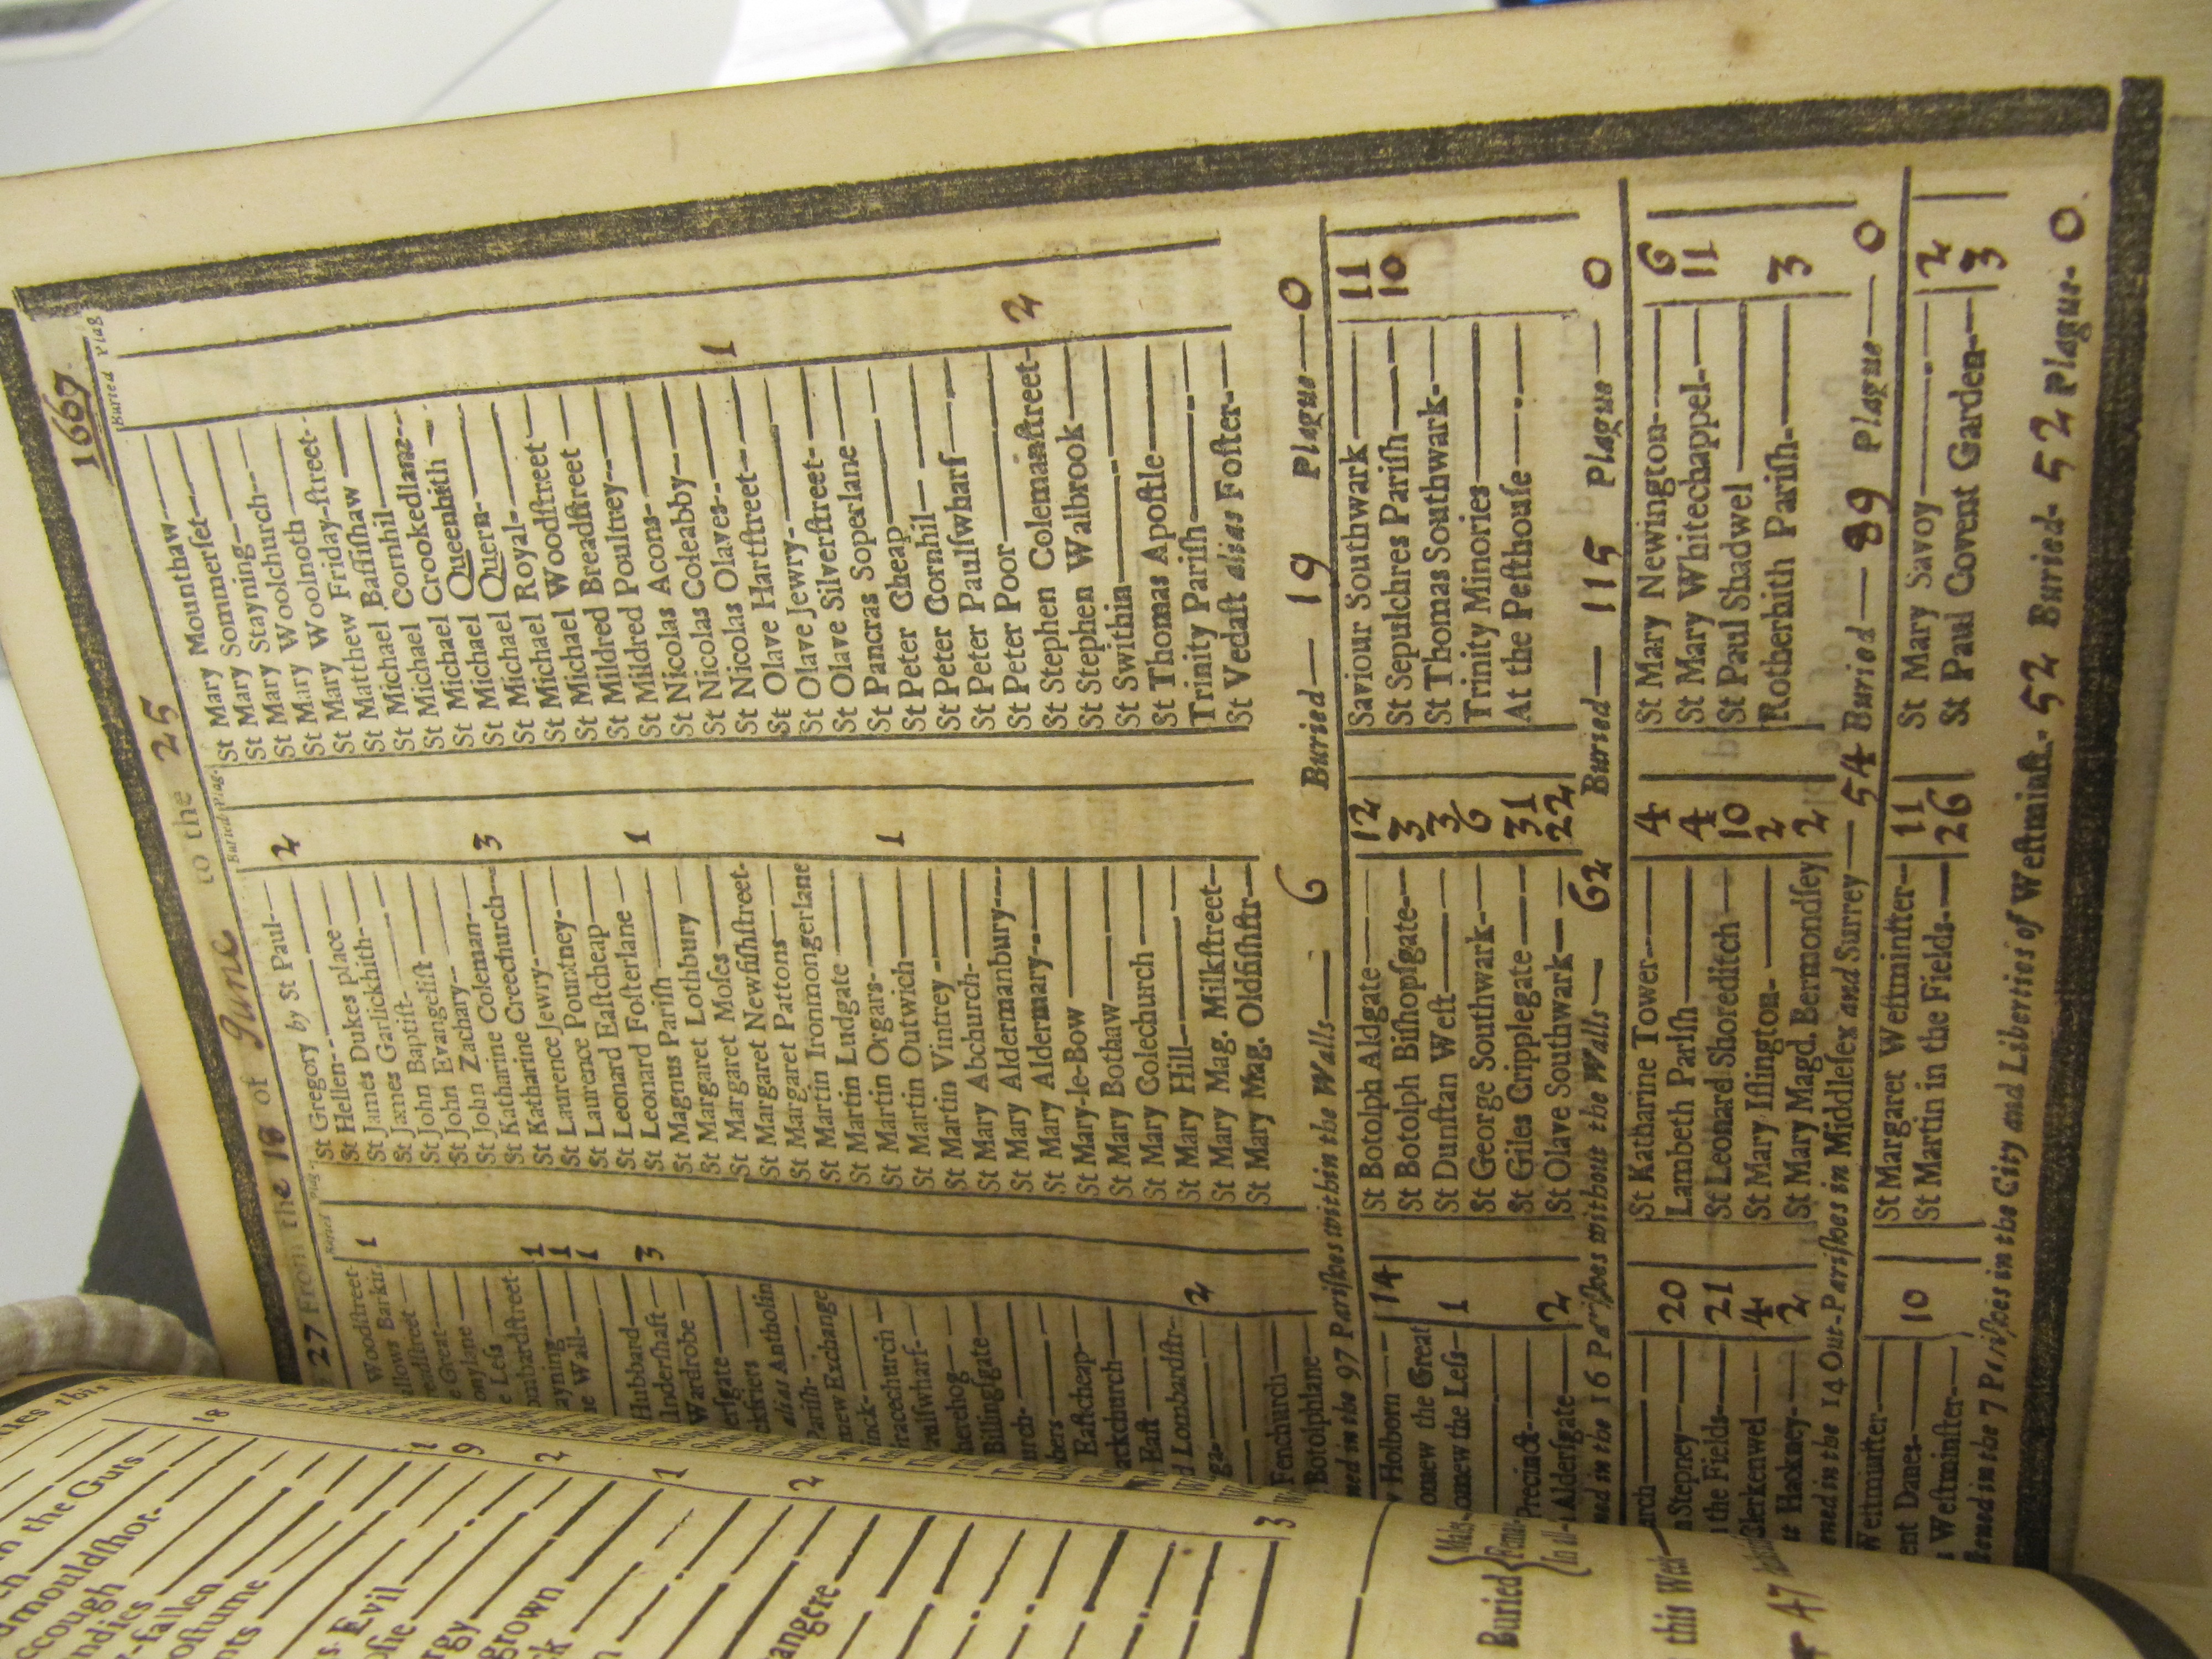 27 From the 18 of June to the 25 1667
Buried Plag. Buried Plag. Buried Plag
Woodſtreet- 1
allows Barkin
readſtreet
e Great
onylane
e Leſs
ombardſtreet- 1
ayning 1
e Wall- 1
Hubbard 3
Underſhaft
Wardrobe
erſgate
ckfriers
alias Antholin
Pariſh-
mew Exchange
inck
racechurch
ralfwharf-
herehog
Billingſgate
hurch-
bers
Eaſtcheap
ackchurch
Eaſt
d Lombardſtr- 2
Fenchurch
Botolphlane
St Gregory by St Paul- 2
St Hellen-
St James Dukes place
St James Garlickhith
St John Baptiſt
St John Evangeliſt
St John Zachary
St Katharine Coleman 3
St Katharine Creechurch
St Laurence Jewry
St Laurence Pountney
St Leonard Eaſtcheap
St Leonard Foſterlane 1
St Magnus Pariſh
St Margaret Lothbury
St Margaret Moſes
St Margaret Newfiſhſtreet-
St Margaret Pattons
St Martin Ironmongerlane
St Martin Ludgate
St Martin Orgars
St Martin Outwich 1
St Martin Vintrey
St Mary Abchurch
St Mary Aldermanbury
St Mary Aldermary
St Mary-le-Bow
St Mary Bothaw
St Mary Colechurch
St Mary Hill
St Mary Mag. Milkſtreet
St Mary Mag. Oldfiſhſtr
St Mary Mounthaw
St Mary Sommerſet
St Mary Stayning
St Mary Woolchurch
St Mary Woolnoth
St Matthew Friday-ſtreet-
St Michael Baſſiſhaw
St Michael Cornhil
St Michael Crookedlane
St Michael Queenhith
St Michael Quern
St Michael Royal
St Michael Woodſtreet
St Mildred Breadſtreet
St Mildred Poultrey
St Nicolas Acons
St Nicolas Coleabby
St Nicolas Olaves 1
St Olave Hartſtreet
St Olave Jewry
St Olave Silverſtreet
St Pancras Soperlane
St Peter Cheap
St Peter Cornhil
St Peter Paulſwharf
St Peter Poor
St Stephen Colemanſtreet 2
St Stephen Walbrook
St Swithin
St Thomas Apoſtle
Trinity Pariſh
St Vedaſt alias Foſter
in the 97 Pariſhes within the Walls 6 Buried 19 Plague 0
Holborn 14 St Botolph Aldgate 12 Saviour Southwark 11
omew the Great St Botolph Biſhopſgate 3 St Sepulchres Pariſh 10
omew the Leſs 1 St Dunſtan Weſt 3 St Thomas Southwark
St George Southwark 6 Trinity Minories
Precinct St Giles Cripplegate 31 At the Peſthouſe
Alderſgate 2 St Olave Southwark 22
in the 16 Pariſhes without the Walls 62 Buried 115 Plague 0
urch St Katharine Tower 4 St Mary Newington 6
Stepney 20 Lambeth Pariſh 4 St Mary Whitechappel 11
the Fields 21 St Leonard Shoreditch 10 St Paul Shadwel
Clerkenwel 4 St Mary Iſlington 2 Rotherhith Pariſh 3
Hackney 2 St Mary Magd. Bermondſey 2
in the 14 Out-Pariſhes in Middleſex and Surrey 54 Buried 89 Plague 0
Weſtminſter
ent Danes 10 St Margaret Weſtminſter 11 St Mary Savoy 2
Weſtminſter St Martin in the Fields 26 St Paul Covent Garden 3
in the 7 Pariſhes in the City and Liberties of Weſtminſt. 52 Buried 52 Plague 0
the Guts 18
dmouldſhot-
ccough
ndies
-fallen 1
oſtume 9
nts
s Evil 2
ofie
rgy 1
grown
2
angere
3
Buried
Males
Fema
In all
this Week
47